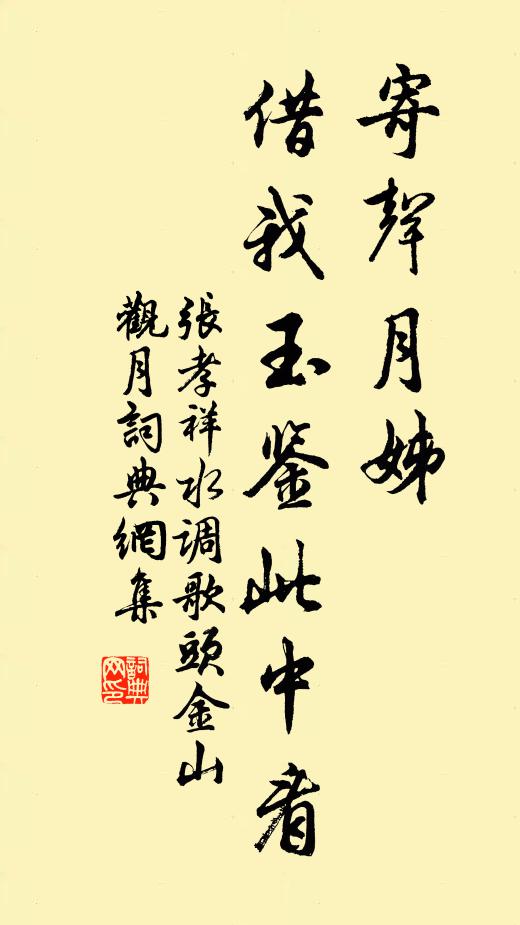 寄聲月姊
借我玉鉴此中看
張孝祥水调歌頭金山
觀月詞典網集
詞典
网印